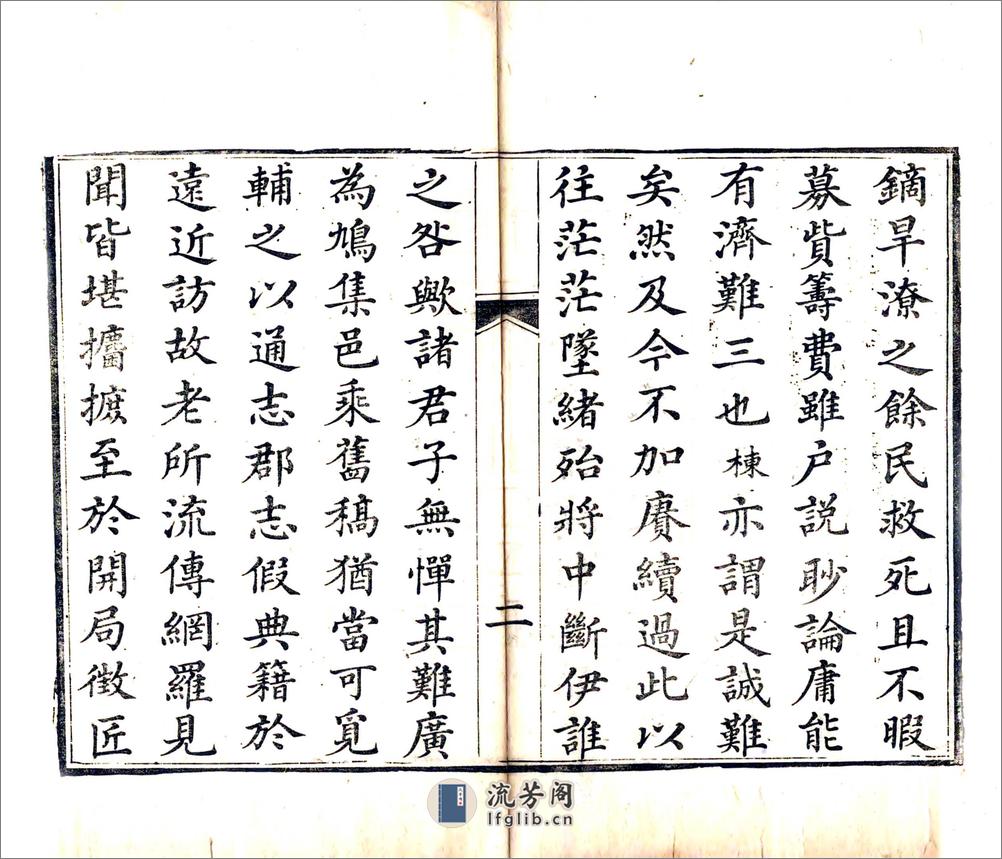 鏑旱潦之餘民救死且不暇
募貲籌費雖戶説眇論庸能
有濟難三也棟亦謂是誠難
矣然及今不加賡續過此以
往茫茫墜緒殆將中斷伊誰
二
之咎歟諸君子無憚其難廣
為鳩集邑乘舊稿猶當可覓
輔之以通志郡志假典籍於
遠近訪故老所流傳網羅見
聞皆堪攟摭至於開局徴匠
流芳阁
lfglib.cn